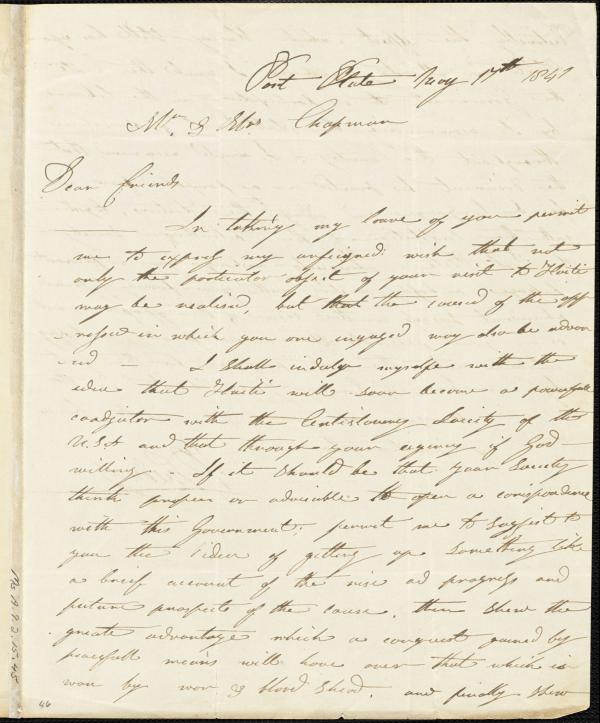 Port Plate May 17th 1841
Mr. & Mrs Chapman
Dear friends
In taking my leave of you permit
me to express my unfeigned wish that not
only the particular object of your visit to Haiti
may be realised, but that the cause of the opp
ressed in which you are engaged may also be advan
ced — I shall indulge myselfe with the
idea that Haiti will soon become a powerfull
coadjutor with the Antislavery Society of the
U.S.A and that through your agency if God
willing. If it should be that your Society
think proper or advisable to open a corispondence
with this Government; permit me to suggest to
you the idea of getting up something like
a brief account of the rise ad progress and
future prospects of the cause, then shew the
greate advantage which a conquest gained by
peacefull means will have over that which is
won by war & blood shead, and finally shew
Ms.A.9.2.15.45
46